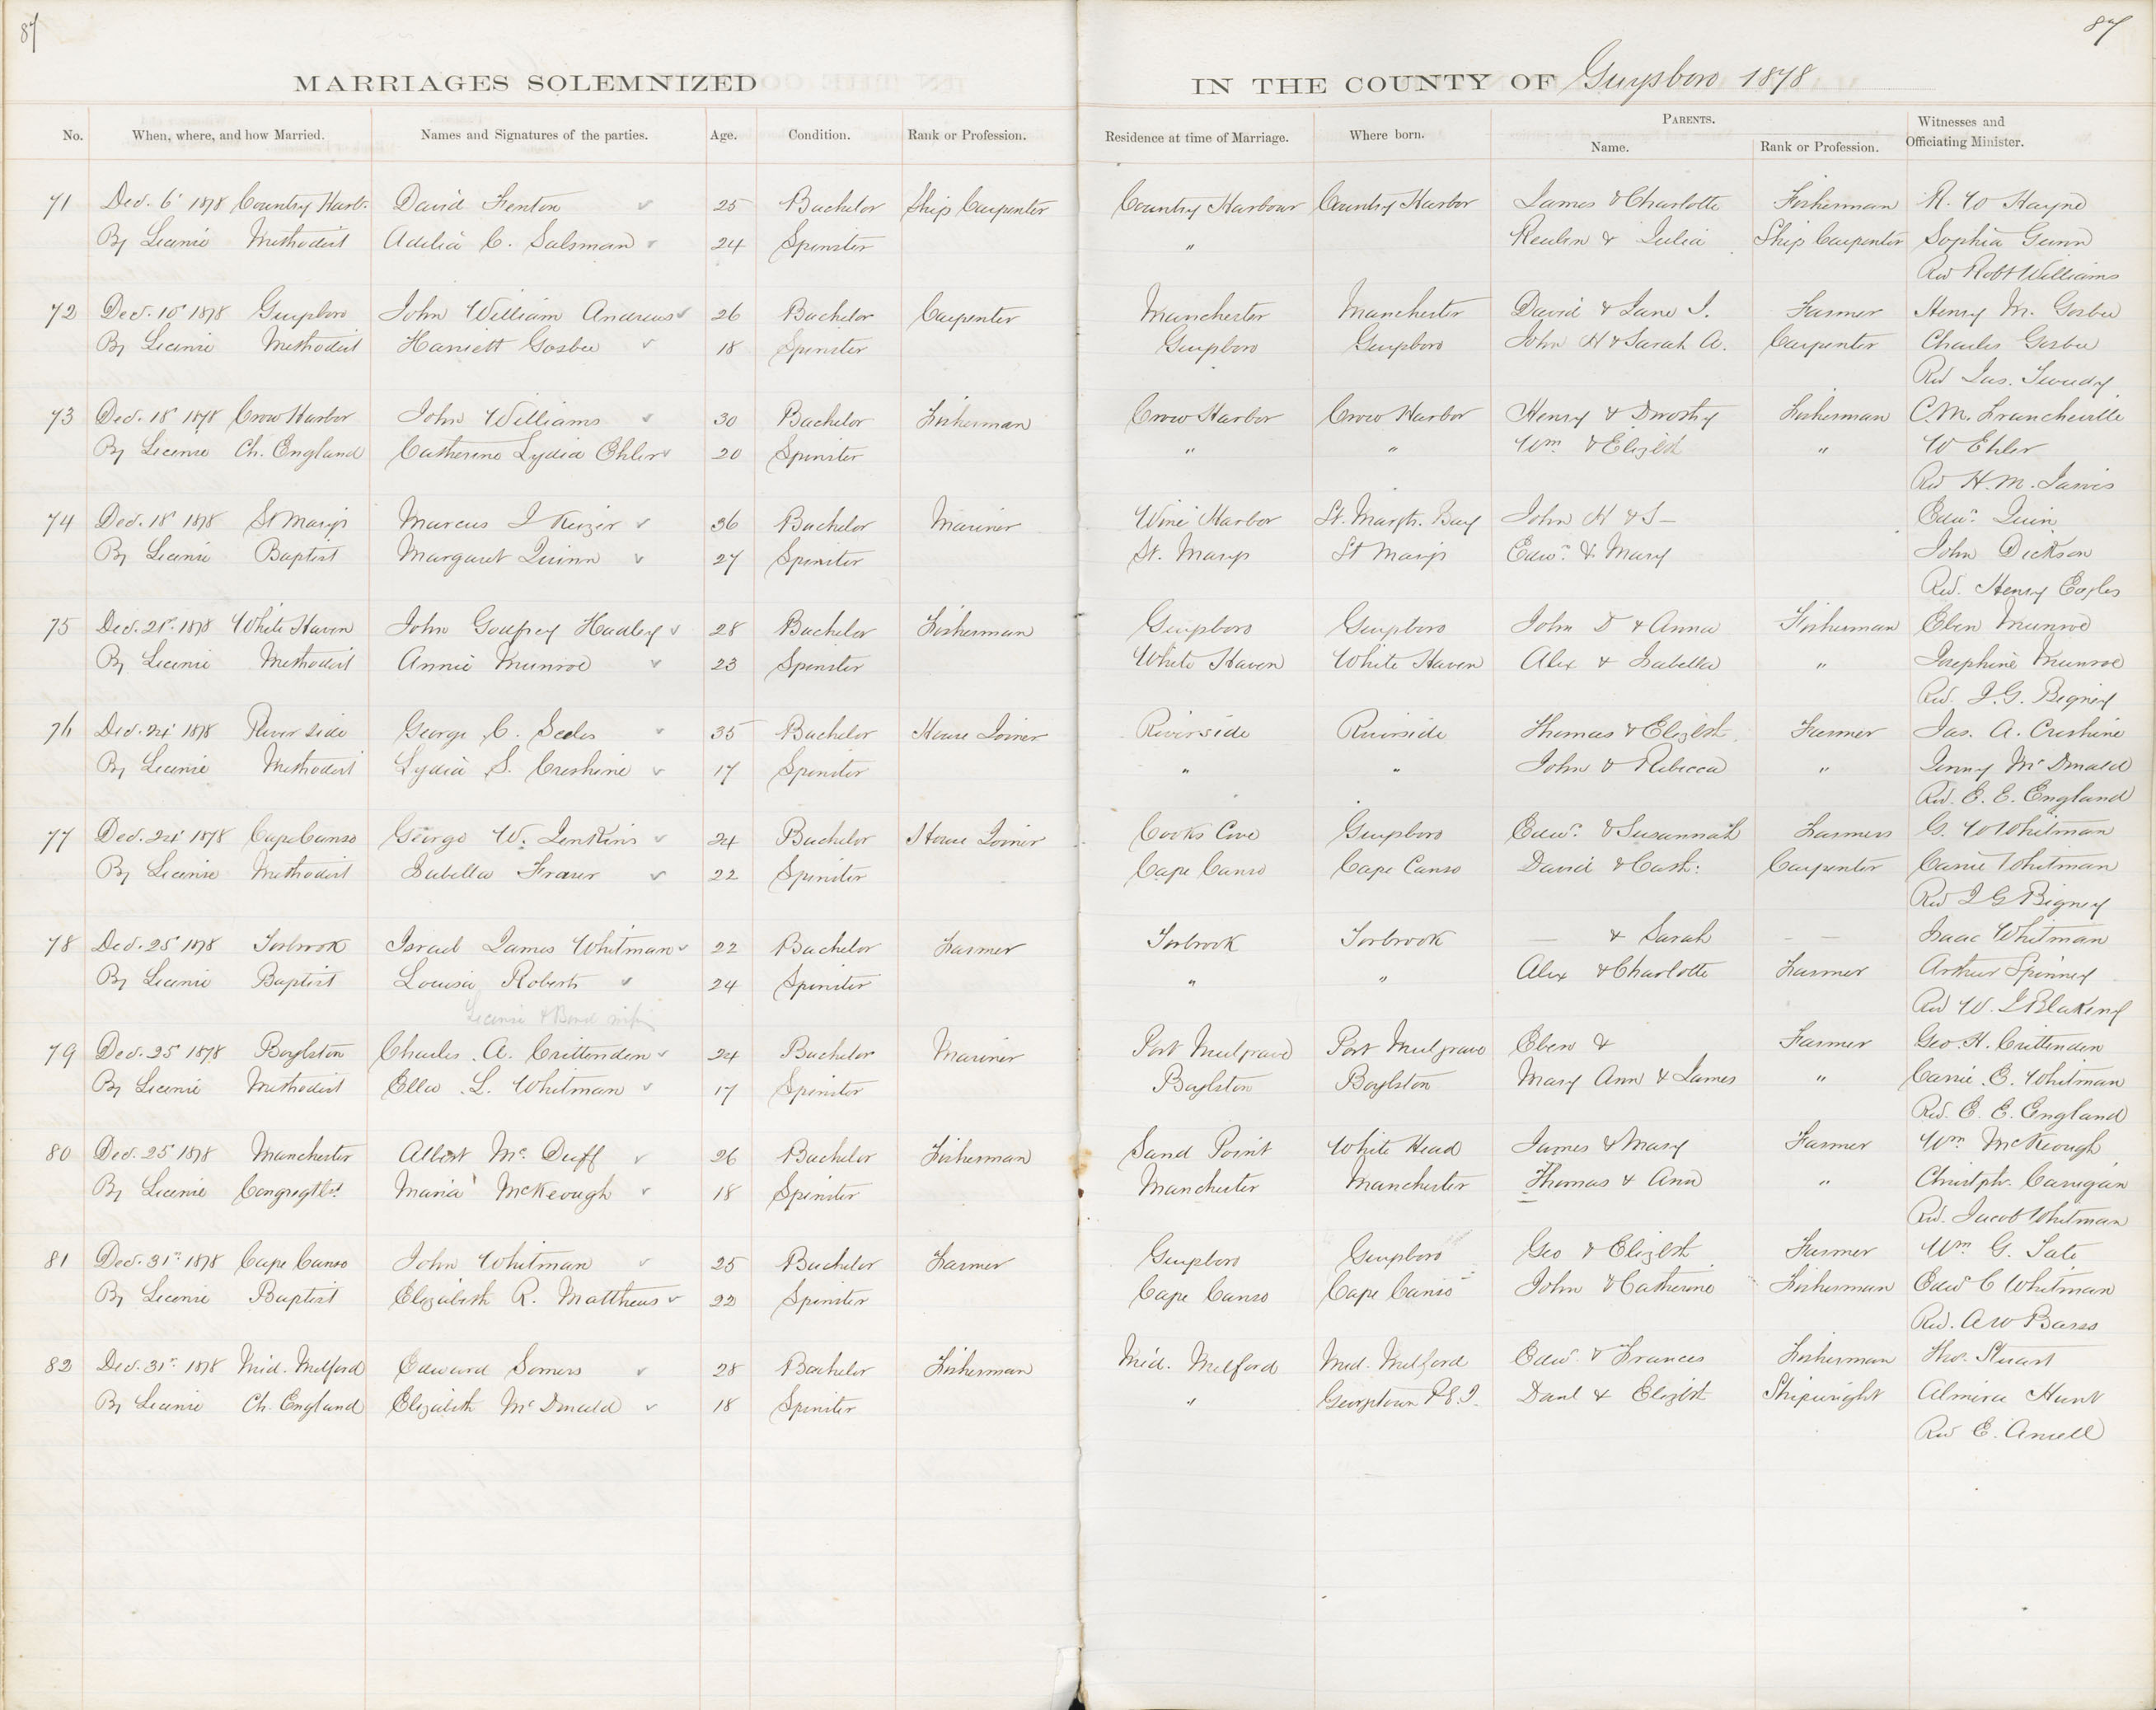 87 87
MARRIAGES SOLEMNIZED IN THE COUNTY OF Guysboro 1878
No. When, where, and how Married. Names and Signatures of the parties. Age. Condition. Rank or Profession. Residence at time of Marriage. Where born. PARENTS. Name. Rank or Profession. Witnesses and Officiating Minister.
71 Dec. 6 1878 Country Harb. David Fenton 25 Bachelor Ship Carpenter Country Harbour Country Harbor James & Charlotte Fisherman R. W Hayne
By License Methodist Adelia C. Salsman 24 Spinster " Reuben & Julia Ship Carpenter Sophia Gunn
Rev Robt Williams
72 Dec. 10 1878 Guysboro John William Andrews 26 Bachelor Carpenter Manchester Manchester David & Jane I. Farmer Henry M. Gosbee
By License Methodist Harriett Gosbee 18 Spinster Guysboro Guysboro John H & Sarah A. Carpenter Charles Gosbee
Rev Jas. Tweedy
73 Dec. 18 1878 Crow Harbor John Williams 30 Bachelor Fisherman Crow Harbor Crow Harbor Henry & Dorothy Fisherman C. M. Francheville
By License Ch. England Catherine Lydia Ehler 20 Spinster " " Wm & Elizbth " W Ehler
Rev H. M. Jarvis
74 Dec. 18 1878 St Marys Marcus J Keizer 36 Bachelor Mariner Wine Harbor St. Margts. Bay John H & S— Edwd. Quin
By License Baptist Margaret Quinn 27 Spinster St. Marys St Marys Edwd. & Mary John Dickson
Rev. Henry Eagles
75 Dec. 21st 1878 White Haven John Godfrey Hadley 28 Bachelor Fisherman Guysboro Guysboro John D & Anna Fisherman Eben Munroe
By License Methodist Annie Munroe 23 Spinster White Haven White Haven Alex & Isabella " Josephine Munroe
Rev. J. G. Bigney
76 Dec. 24 1878 River side George C. Scoles 35 Bachelor House Joiner Riverside Riverside Thomas & Elizbth Farmer Jas. A. Creshine
By License Methodist Lydia S. Creshine 17 Spinster " " John & Rebecca " Jenny McDonald
Rev. E. E. England
77 Dec. 24 1878 Cape Canso George W. Jenkins 24 Bachelor House Joiner Cooks Cove Guysboro Edwd. & Susannah Farmers G. W Whitman
By License Methodist Isabella Fraser 22 Spinster Cape Canso Cape Canso David & Cath: Carpenter Carrie Whitman
Rev J G Bigney
78 Dec. 25 1878 Torbrook Israel James Whitman 22 Bachelor Farmer Torbrook Torbrook — & Sarah — — Isaac Whitman
By License Baptist Louisa Roberts 24 Spinster " " Alex & Charlotte Farmer Arthur Spinney
License & Bond Rev W. J Blakeny
79 Dec. 25 1878 Boylston Charles A. Crittenden 24 Bachelor Mariner Port Mulgrave Port Mulgrave Eben & Farmer Geo. H. Crittenden
By License Methodist Ella L. Whitman 17 Spinster Boylston Boylston Mary Ann & James " Carrie E. Whitman
Rev. E. E. England
80 Dec. 25 1878 Manchester Albert Mc. Duff 26 Bachelor Fisherman Sand Point White Head James & Mary Farmer Wm McKeough
By License Congregtl. Maria McKeough 18 Spinster Manchester Manchester Thomas & Ann " Christphr. Carrigan
Rev. Jacob Whitman
81 Dec. 31st 1878 Cape Canso John Whitman 25 Bachelor Farmer Guysboro Guysboro Geo & Elizbth Farmer Wm. G. Tate
By License Baptist Elizabeth R. Matthews 22 Spinster Cape Canso Cape Canso John & Catherine Fisherman Edwd C Whitman
Rev. A W Barss
82 Dec. 31st 1878 Mid. Melford Edward Somers 28 Bachelor Fisherman Mid. Melford Mid. Melford Edw. & Frances Fisherman Thos. Stuart
By License Ch. England Elizabeth McDonald 18 Spinster " Georgtown P.E.I. Danl & Elizbth Shipwright Almira Hunt
Rev E. Ansell